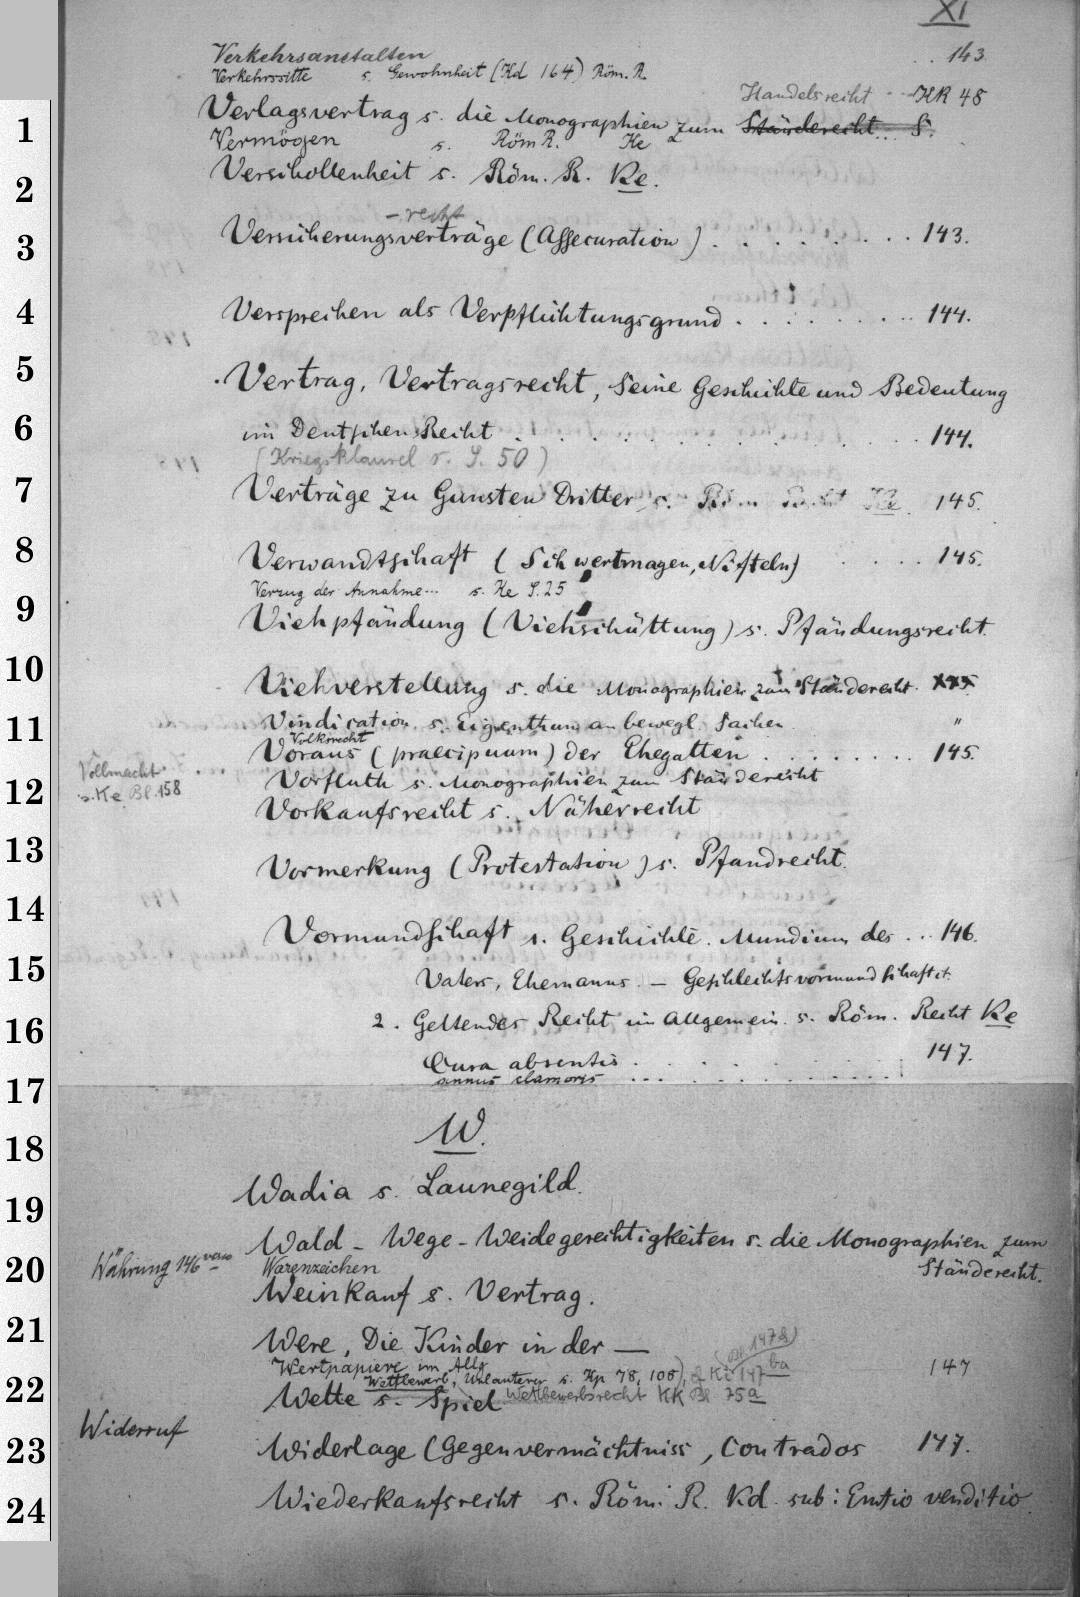 XI
Verkehrsanstalten .. 143
Verkehrssitte s. Gewohnheit (Kd 164) Röm. R.
Handelsrecht -- HR 48
1 Verlagsvertrag s. die Monographien zum Ständerecht... S.
Vermögen s. Röm R. Ke
2 Verschollenheit s. Röm. R. Ke.
- recht
3 Versicherungsverträge (Assecuration) . . . . . . . . 143.
4 Versprechen als Verpflichtungsgrund . . . . . . . . 144.
5 Vertrag, Vertragsrecht, seine Geschichte und Bedeutung
6 im Deutschen Recht . . . . . . . . . . 144.
(Kriegsklausel s. S. 50)
7 Verträge zu Gunsten Dritter s. Röm Recht Ke 145.
8 Verwandtschaft (Schwertmagen, Nifteln) . . . . 145.
Verzug der Annahme... s. Ke S. 25
9 Viehpfändung (Viehschüttung) s. Pfändungsrecht.
10 Viehverstellung s. die Monographien zum Ständerecht.
11 Vindication s. Eigenthum an bewegl. Sachen "
Volksrecht
Voraus (praecipuum) der Ehegatten . . . . . . . . 145.
Vollmacht
s. Ke Bl. 158
12 Vorfluth s. Monographien zum Ständerecht
Vorkaufsrecht s. Näherrecht
13 Vormerkung (Protestation) s. Pfandrecht.
14 Vormundschaft 1. Geschichte. Mundium des ... 146.
15 Vaters, Ehemanns. – Geschlechtsvormundschaft.
16 2. Geltendes Recht im Allgemein. s. Röm. Recht Ke
Cura absentis . . . . . . 147.
17 annus clamoris ... . . . . . .
18 W.
19 Wadia s. Launegild.
Wald - Wege - Weidegerechtigkeiten s. die Monographien zum
Währung 146
20 Warenzeichen Ständerecht.
Weinkauf s. Vertrag.
21 Were, Die Kinder in der — 147
Wertpapiere im Allg.
Wettbewerb, Unlauterer s. Hp 78, 108)
22 Wette s. Spiel Wettbewerbsrecht KK Bl 75a
Widerruf
23 Widerlage (Gegenvermächtniss, Contrados 147.
24 Wiederkaufsrecht s. Röm. R. Kd. sub: Emtio venditio